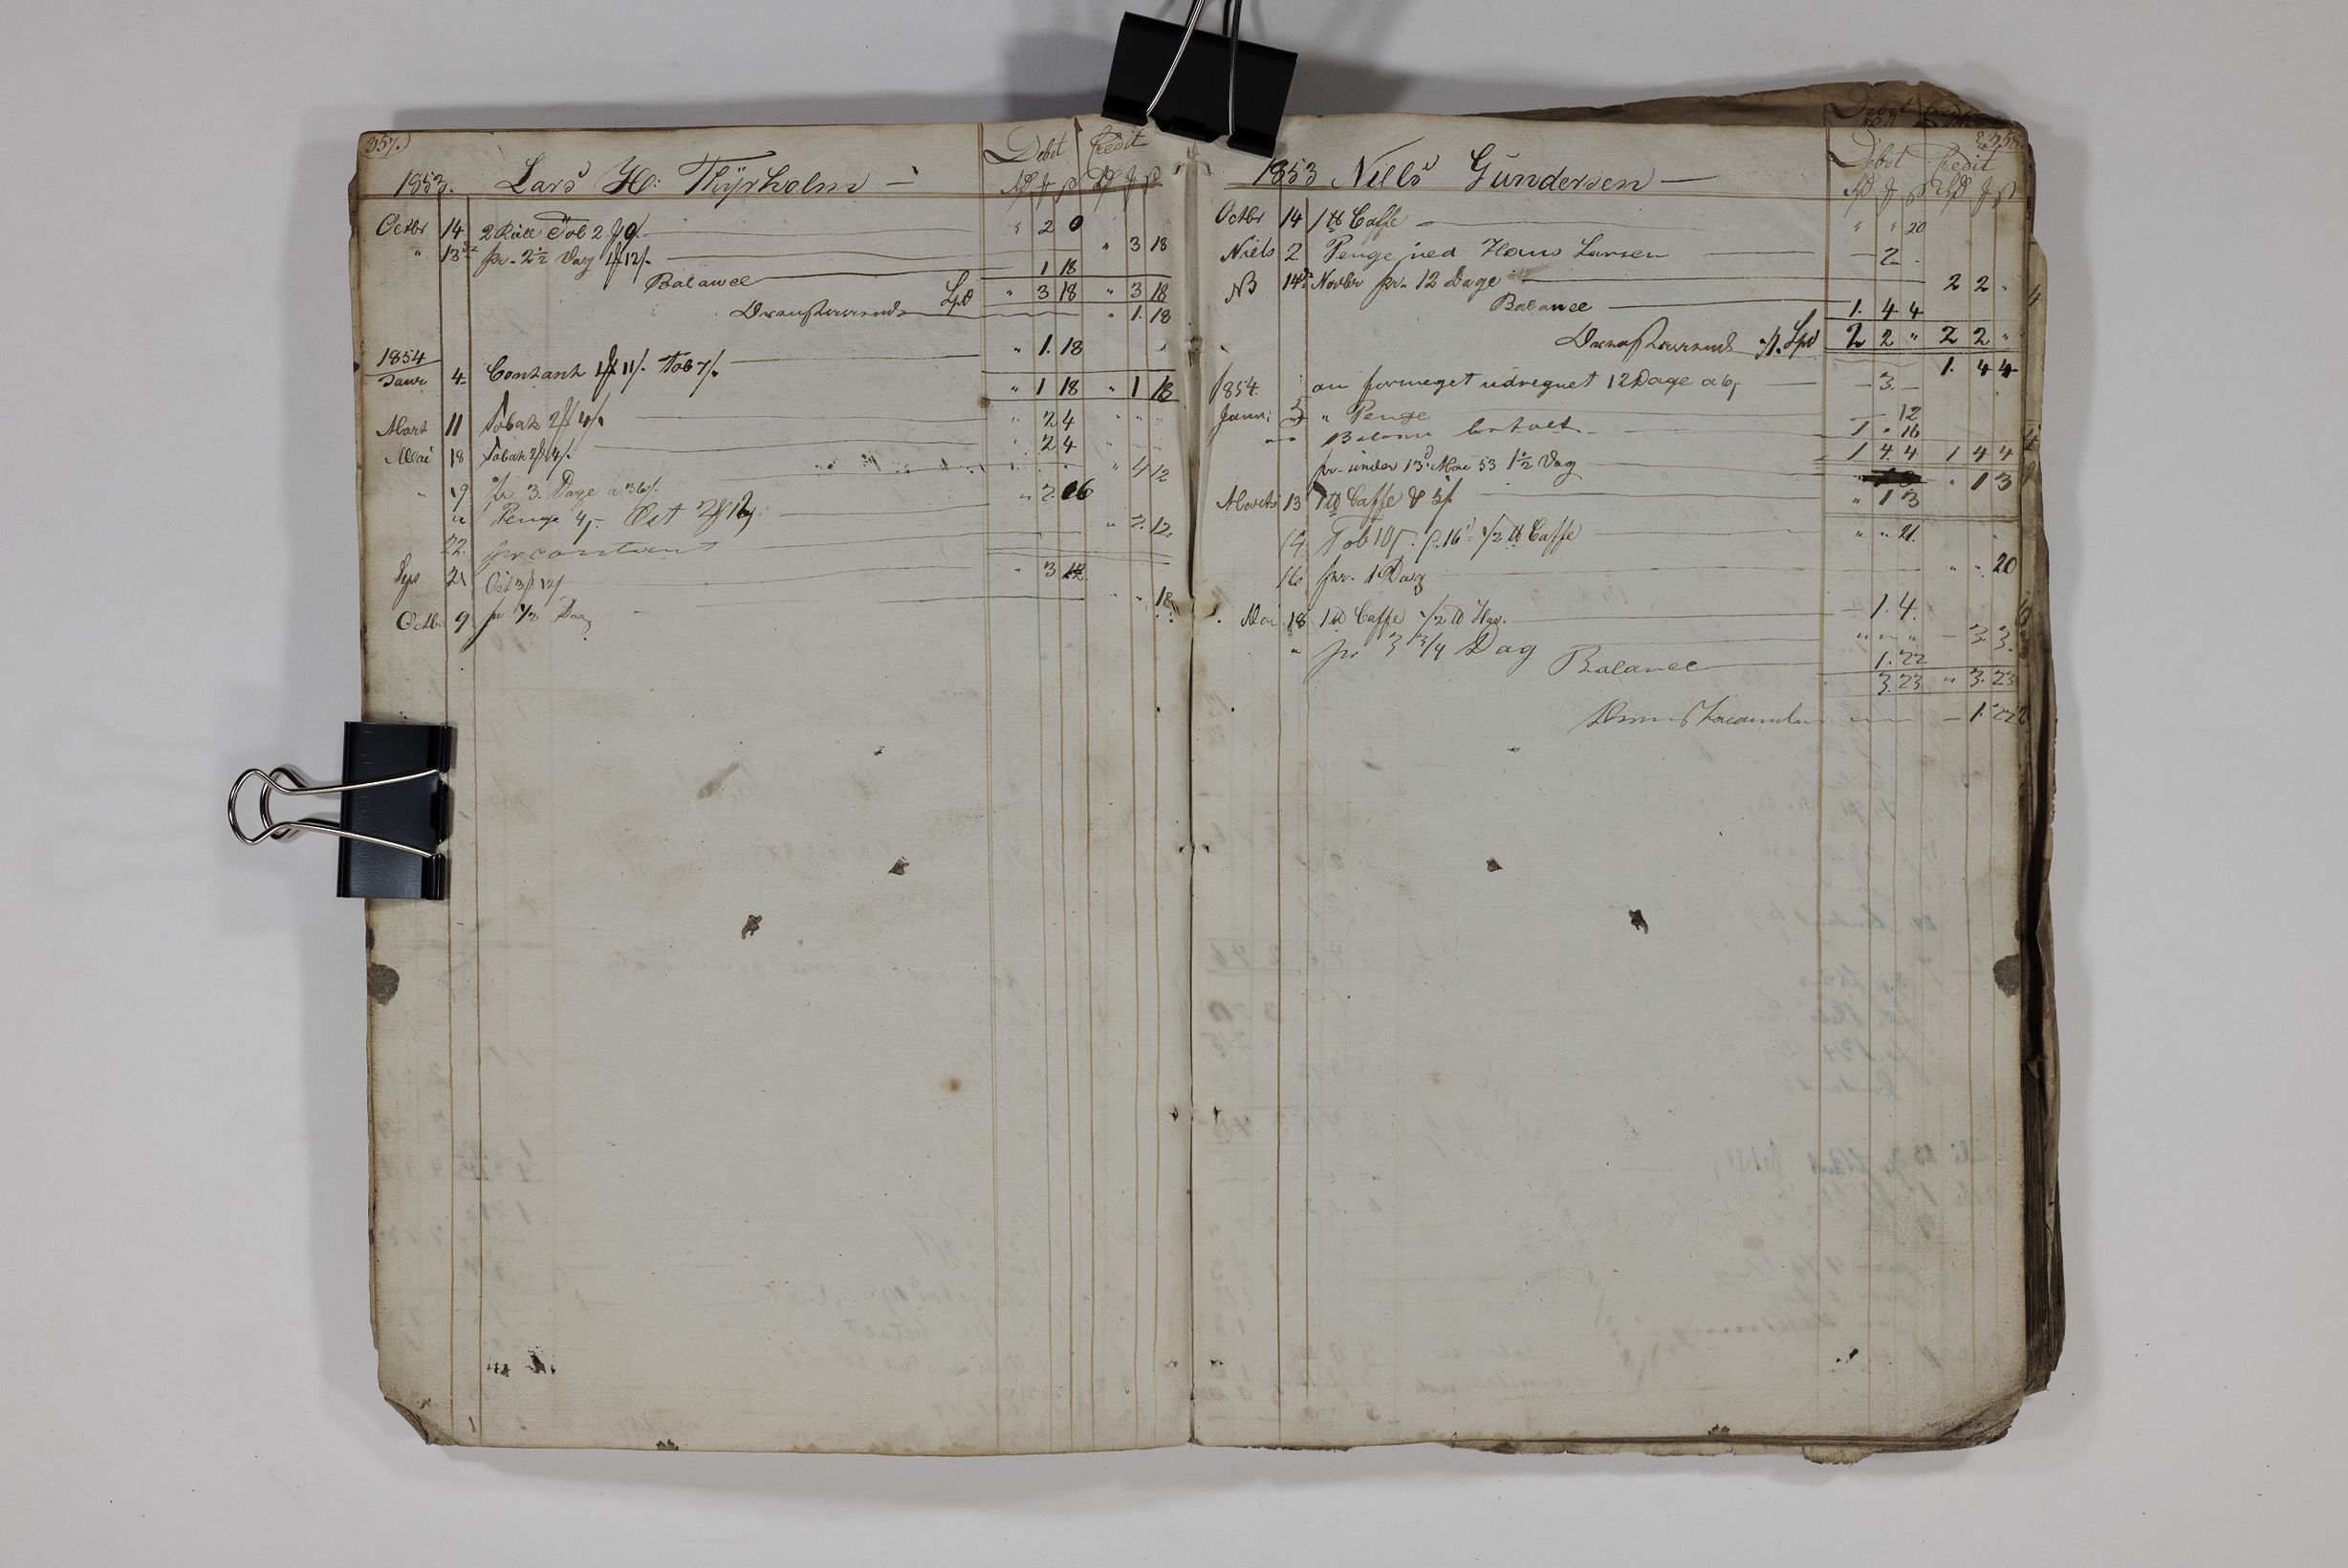 357.)
1853. Lars H: Thÿrholm — Debet Credit
Octbr 14 2 Rull Tob 2 " 2 0
" 13 pr. 2½ Dag " 3 18
Balance 1 18
Spd " 3 18 " 3 18
" 1. 18
1854 " 1. 18
Janr 4 Contant 11/. Tob 7/. " 1 18 " 1 18
Mart 11 Tobak 2 4/. " 2 4
Mai 18 Tobak 2 4/. " 2 4
" 19 pr 3. Dage a 36/. " 4 12
" Penge 4/- Ost " 2. 16
22. pr contant " 2. 12.
21 Ost 3 12/ " 3 12
Octb. 9 pr ½ Dag " " 18
358
1853 Niels Gündersen — Debet Credit
Octbr 14 1 ℔ Caffe " " 20
Niels 2 Penge ved Hans Larsen — 2 -
NB 14 Novbr pr. 12 Dage 2 2 "
Balance 1. 4. 4
Spd 2 2 " 2 2 "
1. 4 4
1854. an formeget udregnet 12 Dage a 6/ — 3. —
Janr: 3 " Penge — 12
Balance betalt 1 " 16
1 4. 4 1 4 4
pr. under 13 Mai 53 1½ Dag " 1 3
Marts 13 1 ℔ Caffe " 1 3
14 Tob 10/. ½ ℔ Caffe " " 21.
16 pr. 1 Dag " " 20
Mai 18 1 ℔ Caffe ½ ℔ — 1. 4.
" pr 3 3/4 Dag " " " — 3. 3.
Balance 1. 22
3. 23 " 3. 23
— 1. 22